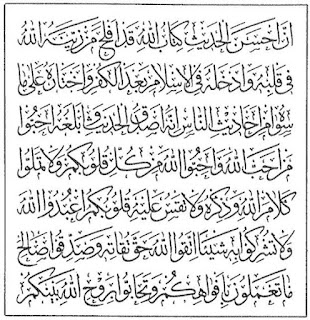 انَّ احْسَنَ الحَديثِ كِتابُ اللهِ قَد افْلَحَ مَنْ زَيَّنَهُ اللهُ
فى قَلْبِهِ وَادْخَلَهُ فى الاسْلامِ بَعْدَ الكُفْرِ وَاخْتارَهُ عَلى ما
سِواهُ مِنْ احاديثِ النّاسِ انَّهُ اصْدَقُ الحَديثِ وَابْلَغُهُ احِبُّوا
مَنْ احَبَّ اللهَ وَاحِبُّوا اللهَ مِنْ كُلِّ قُلُوبِكُمْ وَلا تَمَلُّوا
كَلامَ اللهِ وَذِكْرَهُ وَلا تَقْسُ عَلَيْهِ قُلُوبُكُمْ اعْبُدُوا اللهَ
وَلا تُشْرِكُوا بِهِ شَيْئًا اتَّقُوا اللهَ حَقَّ تُقاتِهِ وَصَدِّقُوا صالِحَ
ما تَعْمَلُونَ بِافْواهِكُمْ وَتَحابُّوا بِرُوحِ اللهِ بَيْنَكُمْ